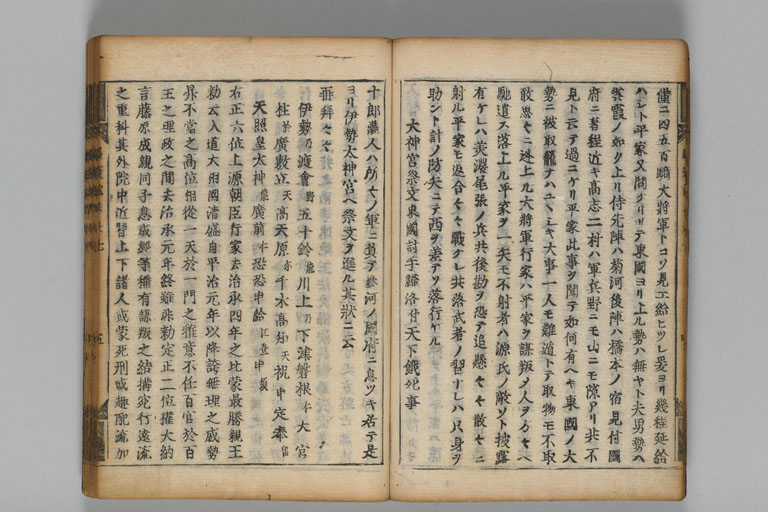 僅ニ四五百騎大将軍トコソ見エ給ヒツレ爰ヨリ幾程延給
ハシト平家又聞ケリサテ東國ヨリ上ル勢ハ無ヤト夫男勢ハ
雲霞ノ如ク上リ侍先陣ハ菊河後陣ハ橋本ノ宿見付國
府ニ著程近キ高志二村ハ軍兵野ニモ山ニモ隙アリ共不
見ト云テ過ニケリ平家此事ヲ聞テ如何有ヘキ東國ノ大
勢ニ被取籠ナハ大事一人モ難遁トテ取物モ不取
敢忠セニ迯上ル大将軍行家ハ平家ヲ謀叛ノ人ヲ
馳遣ス落上ル平家ヲ一矢モ不射者ハ源氏ノ敵ソト披露
有ケレハ美濃尾張ノ兵共後勘ヲ恐テ追懸々々散々ニ
射ル平家モ返合々々戰ケレ共落武者ノ習ナレハ只身ヲ
助ント計ノ防矢ニテ西ヲ差テソ落行ケル
大神宮祭文東國討手歸洛付天下餓死事
十郎藏人ハ所々ノ軍ニ負テ參河ノ國府ニ息ツキ居テ是
ヨリ伊勢太神宮ヘ祭文ヲ進ル其狀ニ云
再拜々々
伊勢乃渡會 五十鈴 川上乃下津磐根 大宮
柱 廣敷立天高天原 千木高知天祝申定奉
天照皇太神 廣前 恐恐申給
右正六位上源朝臣行家去治承四年之比蒙最勝親王
勅云入道大相國淸盛自平治元年以降誇無理之威勢
昇不當之高位相從一天於一門之雅意不任百官於百
王之理政之間去治承元年終雖非勅定正二位權大納
言藤原成親同子息成經等稱有謀叛之結構宛行遠流
之重科其外院中近習上下諸人或蒙死刑或趣配流加